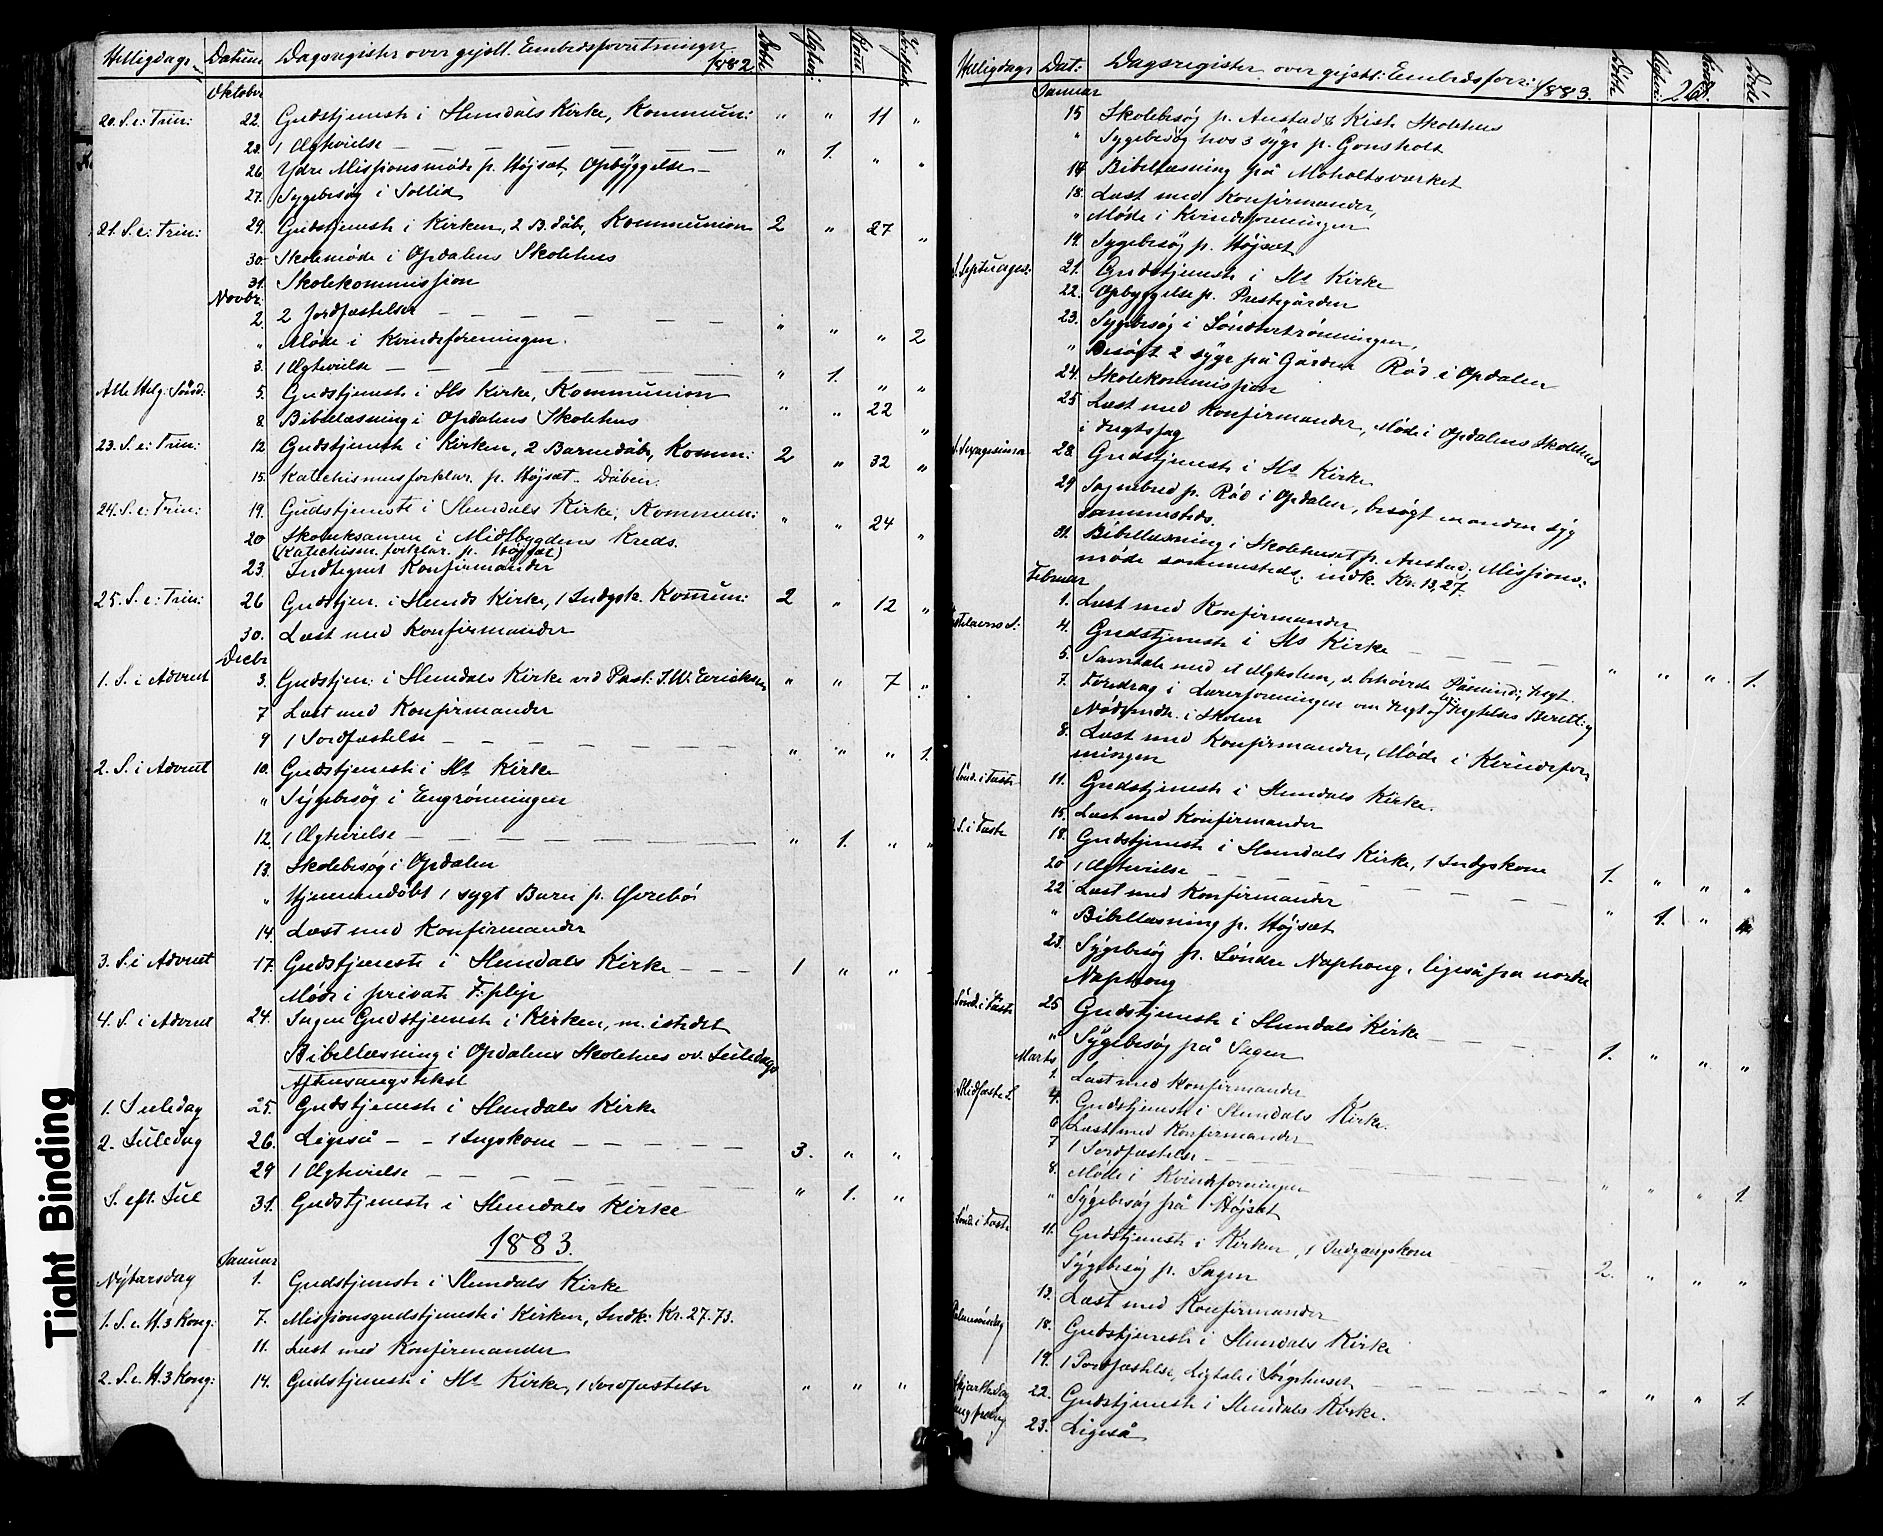 Helligdage Datum Dagsregister over gejstl. Embedsforretninger 1882 Døbte Ægtevi: Konf Jordfæst
Oktober
20. S. e: Trin: 22. Gudstjeneste i Slemdals Kirke, Kommun: " " 11 "
23. 1 Ægtevielse " 1. " "
26. Ydre Missionsmøde p. Højsæt, Opbyggelse
27. Sygebesøg i Sollid
21. S. e: Trin: 29. Gudstjeneste i Kirken, 2 B. Dåb, Kommunion 2 " 27 "
30. Skolemøde i Opdalens Skolehus
31. Skolekommission
Novbr.
2. 2 Jordfæstelser " " " 2
" Møde i Kvindeforeningen.
3. 1 Ægtevielse " 1. " "
Alle Helg. Sønd: 5. Gudstjeneste i Sls Kirke, Kommunion " " 22 "
8. Bibellæsning i Opdalens Skolehus
23. S. e: Trin: 12. Gudstjeneste i Kirken, 2 Barnedåb, Komm: 2 " 32 "
15. Katechismusforklar. p. Højsæt. Dåben.
24. S. e: Trin: 19. Gudstjeneste i Slemdals Kirke, Kommun: " " 24 "
20 Skoleeksamen i Midtbygdens Kreds.
(Katechism. forklar. p. Højsæt)
23. Indtegnet Konfirmander
25. S. e: Trin: 26 Gudstjen. i Slemds Kirke, 1 Indgsk. Kommun: 2 " 12 "
30. Læst med Konfirmander
Decbr
1. S. i Advent 3. Gudstjen: i Slemdals Kirke ved Past. J. W. Ericksen " " 7 "
7 Læst med Konfirmander
9 1 Jordfæstelse " " " 1.
2. S. i Advent 10. Gudstjeneste i Sls Kirke
" Sygebesøg i Engrønningen
12. 1 Ægtevielse " 1. " "
13. Skolebesøg i Opdalen
" Hjemmedøbt 1 sygt Barn p. Øvrebø
14. Læst med Konfirmander
3. S. i Advent 17. Gudstjeneste i Slemdals Kirke 1 " "
Møde i private
4. S. i Advent 24. Ingen Gudstjeneste i Kirken, m. istedet
Bibellæsning i Opdalens Skolehus ov. Juledags
Aftensangstekst
1. Juledag 25. Gudstjeneste i Slemdals Kirke
2. Juledag 26. Ligeså 1 Ingskone 3. " "
29 1 Ægtevielse " 1. "
S. eft. Jul 31. Gudstjeneste i Slemdals Kirke
1883.
Januar
Nytårsdag 1. Gudstjeneste i Slemdals Kirke
1. S. e. H. 3 Kong: 7. Missionsgudstjeneste i Kirken, Indk: Kr. 27.73.
11. Læst med Konfirmander
2. S. e. H. 3 Kong: 14. Gudstjeneste i Sls Kirke, 1 Jordfæstelse " " "
Helligdags Dat: Dagsregister over gejstl: Embedsforr: 1883. Døbte 268.
Januar
15 Skolebesøg p. Anstad & Kise Skolehus
" Sygebesøg hos 3 syge p. Gonsholt
17 Bibellæsning på Moholtsværket
18. Læst med Konfirmander,
" Møde i Kvindeforeningen
19. Sygebesøg p. Højsæt
S. Septuages: 21. Gudstjeneste i Sls Kirke
22. Opbyggelse p. Prestegården
23. Sygebesøg i Søndretrønningen,
" Besøgt 2 syge på Gården Rød i Opdalen
24. Skolekommission
25 Læst med Konfirmander, Møde i Opdalens Skolehus
i Avgtssag
S. Sexagesima 28. Gudstjeneste i Sls Kirke
29 Sognebud p. Rød i Opdalen, besøgt manden syg
sammesteds.
31. Bibellæsning i Skolehuset p. Anstad, Missions-
møde sammesteds, indk. Kr. 13,27.
Februar
1. Læst med Konfirmander
Fastelavns S. 4. Gudstjeneste i Sls Kirke " " " 1.
5. Samtale med
7. Foredrag i Lærerforeningen om
Nødvendh. i Skolen
8. Læst med Konfirmander, Møde i Kvindefor-
ningen
Sønd. i Faste 11. Gudstjeneste i Slemdals Kirke.
15. Læst med Konfirmander
S. i Faste 18. Gudstjeneste i Slemdals Kirke, 1 Indgskone 1. " " "
20 1 Ægtevielse " 1. "
22 Læst med Konfirmander
" Bibellæsning p. Højsæt
23. Sygebesøg p. Søndre Naphoug, ligeså på nordre
Naphoug
Sønd. i Faste 25 Gudstjeneste i Slemdals Kirke 1. " " "
" Sygebesøg på Sagen
Marts
1. Læst med Konfirmander
Midfaste S. 4. Gudstjeneste i Slemdals Kirke.
6 Læst med Konfirmander
7 1 Jordfæstelse " " " 1.
8. Møde i Kvindeforeningen
" Sygebesøg på Højsæt
Sønd. i Faste 11. Gudstjeneste i Kirken, 1 Indgangskone 2. " " "
Sygebesøg p. Sagen
13. Læst med Konfirmander
Palmesøndag 18. Gudstjeneste i Slemdals Kirke
19. 1 Jordfæstelse, Ligtale i Sørgehuset " " " 1.
Skjærthsdag 22. Gudstjeneste i Slemdals Kirke.
Langfredag 23. Ligeså
Tight Binding